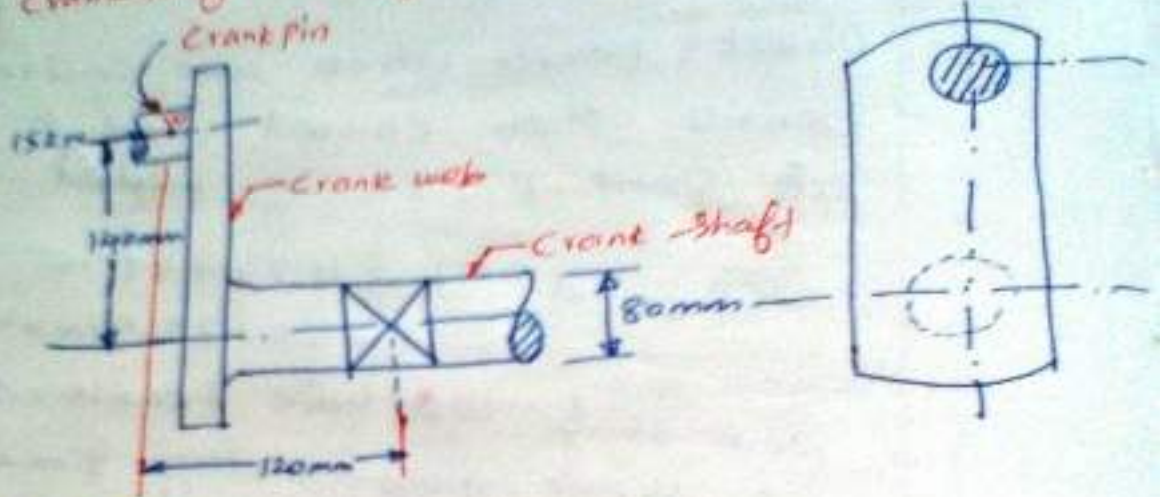 Crank pin
15kN
140mm
Crank web
Crank Shaft
80mm
120mm